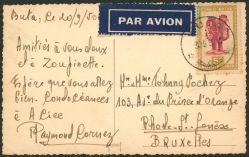 Buta, Le 20/9/50
PAR AVION
Amitiés à vous deux
et à Zoupinette.
Espère que vous allez
bien. Condoléances
à Cice
Raymond Cornez
Mr. Mme Johnny Pochez
103, Av. du Prince d'Orange
Rhode-St-Genèse
BRUXELLES